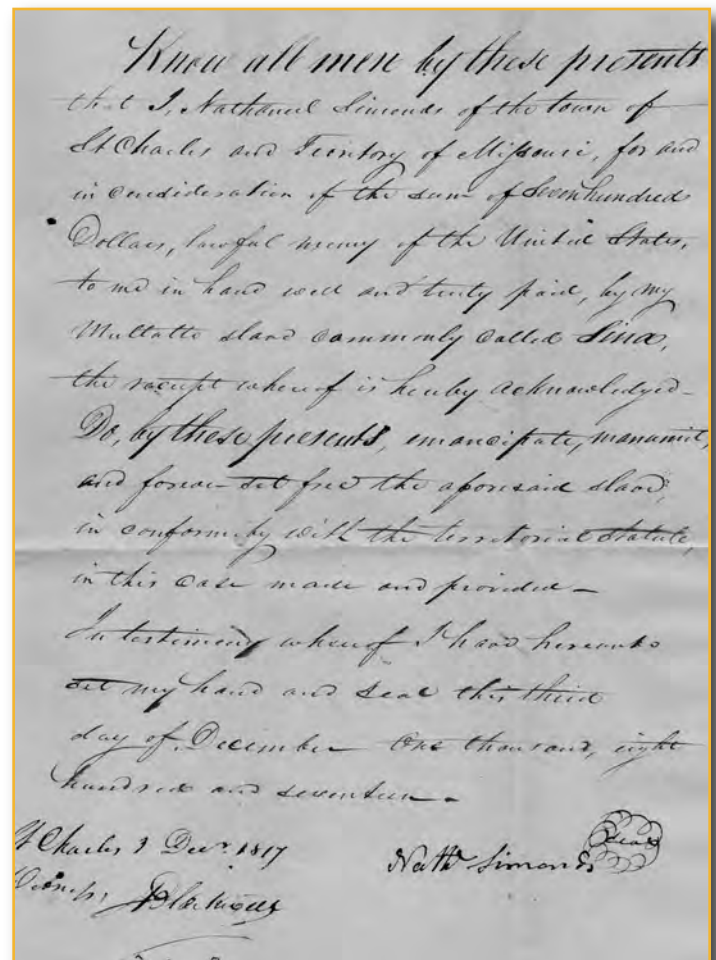 Know all men by these presents
that I, Nathaniel Simonds of the town of
St Charles and Territory of Missouri, for and
in consideration of the sum of Seven hundred
Dollars, lawful money of the United States,
to me in hand well and truly paid, by my
Mullatto slave commonly called Lina,
the receipt whereof is hereby acknowledged-
Do, by these presents, emancipate, manumit,
and forever set free the aforesaid slave,
in conformity with the territorial statute,
in this case made and provided-
In testimony whereof I have hereunto
set my hand and seal this third
day of December One thousand, eight
hundred and seventeen-
St Charles 3 Decr. 1817
Nathl Simonds seal
Witness,